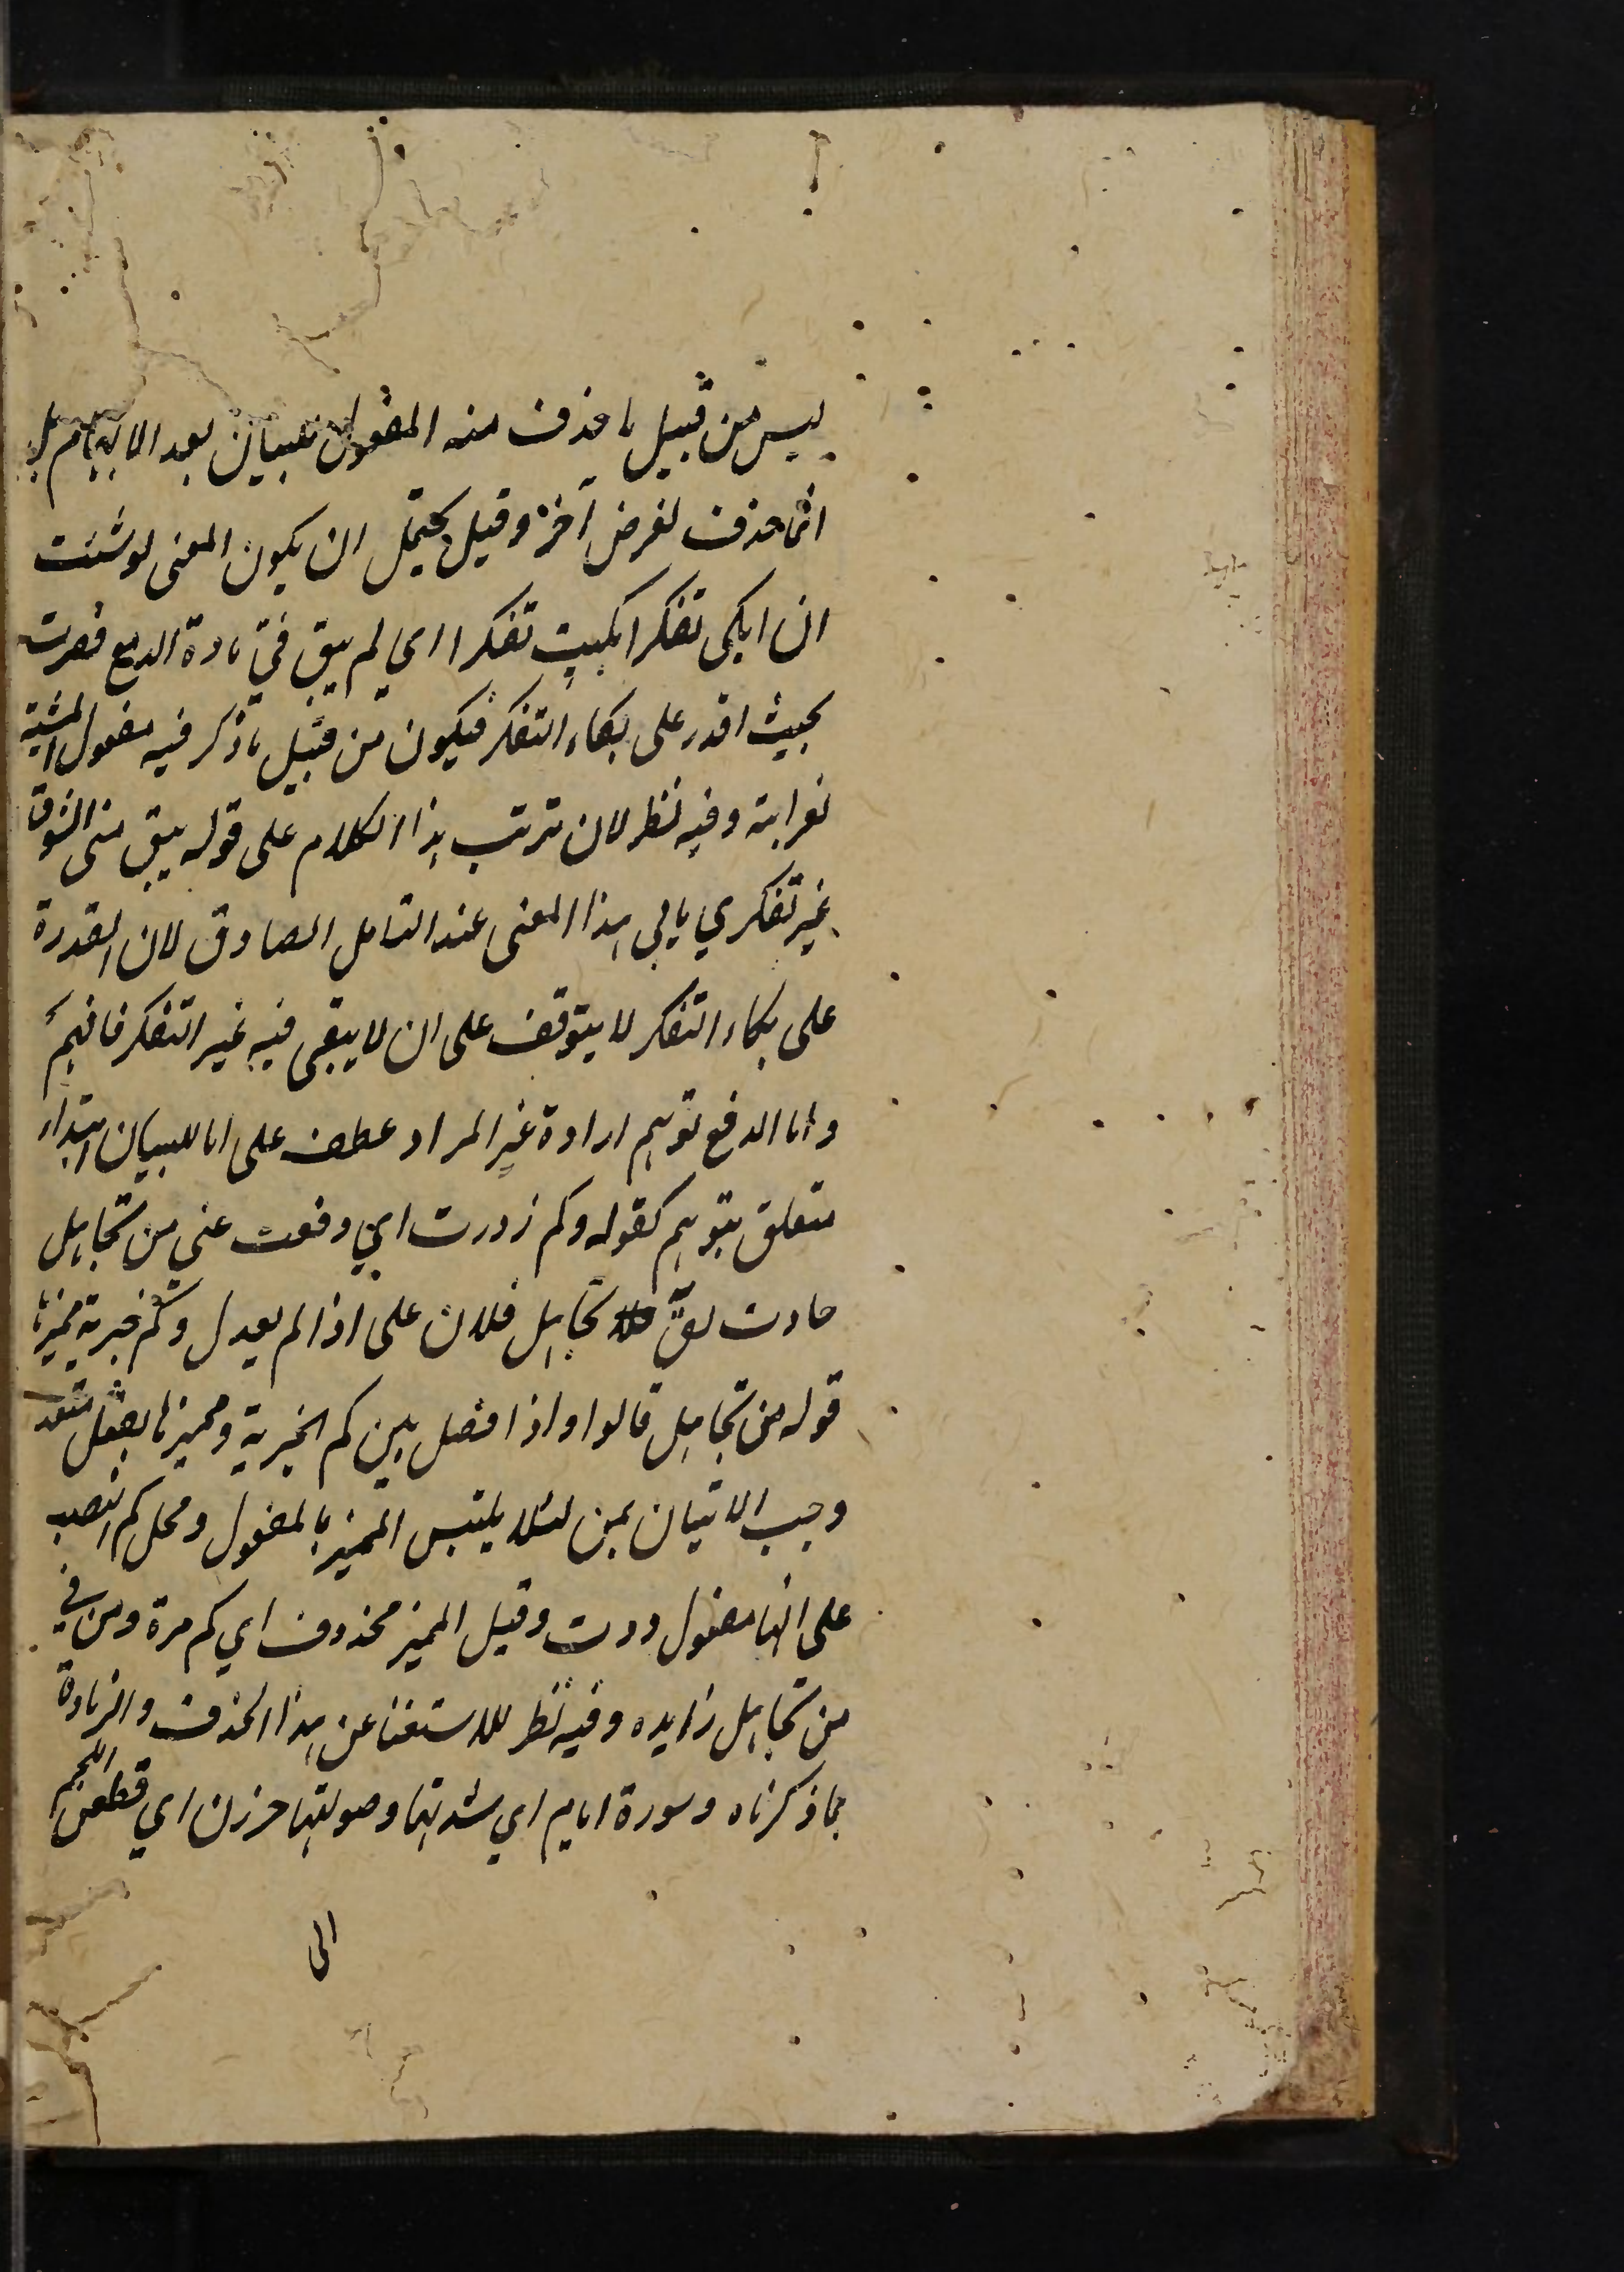 ليس من قبيل ما حذف منه المفعول للبيان بعد الابهام بل
انما حذف لغرض آخر وقيل يحتمل ان يكون المعنى لو شئت
ان ابكى تفكرا بكيت تفكرا اى لم يبق فيّ مادة الدمع فصرت
بحيث اقدر على بكاء التفكر فيكون من قبيل ما ذكر فيه مفعول المشية
لغرابته وفيه نظر لان ترتب هذا الكلام على قوله يبق منى الشوق
غير تفكري يابى هذا المعنى عند التامل الصادق لان القدرة
على بكاء التفكر لا يتوقف على ان لا يبقى فيه غير التفكر فافهم
واما لدفع توهم ارادة غير المراد عطف على اما للبيان ابتداء
متعلق بتوهم كقوله وكم ذدت اي دفعت عنى من تحامل
حادث يقّ تحامل فلان على اذا لم يعدل وكم خبرية مميزها
قوله من تحامل قالوا واذا فصل بين كم الخبرية ومميزها بفعل متعد
وجب الاتيان بمن لئلا يلتبس المميز بالمفعول ومحل كم النصب
على انها مفعول ذدت وقيل المميز محذوف اي كم مرة ومن في
من تحامل زايده وفيه نظر للاستغنا عن هذا الحذف والزيادة
بما ذكرناه وسورة ايام اي شدتها وصولتها حززن اي قطعن اللحم
الى